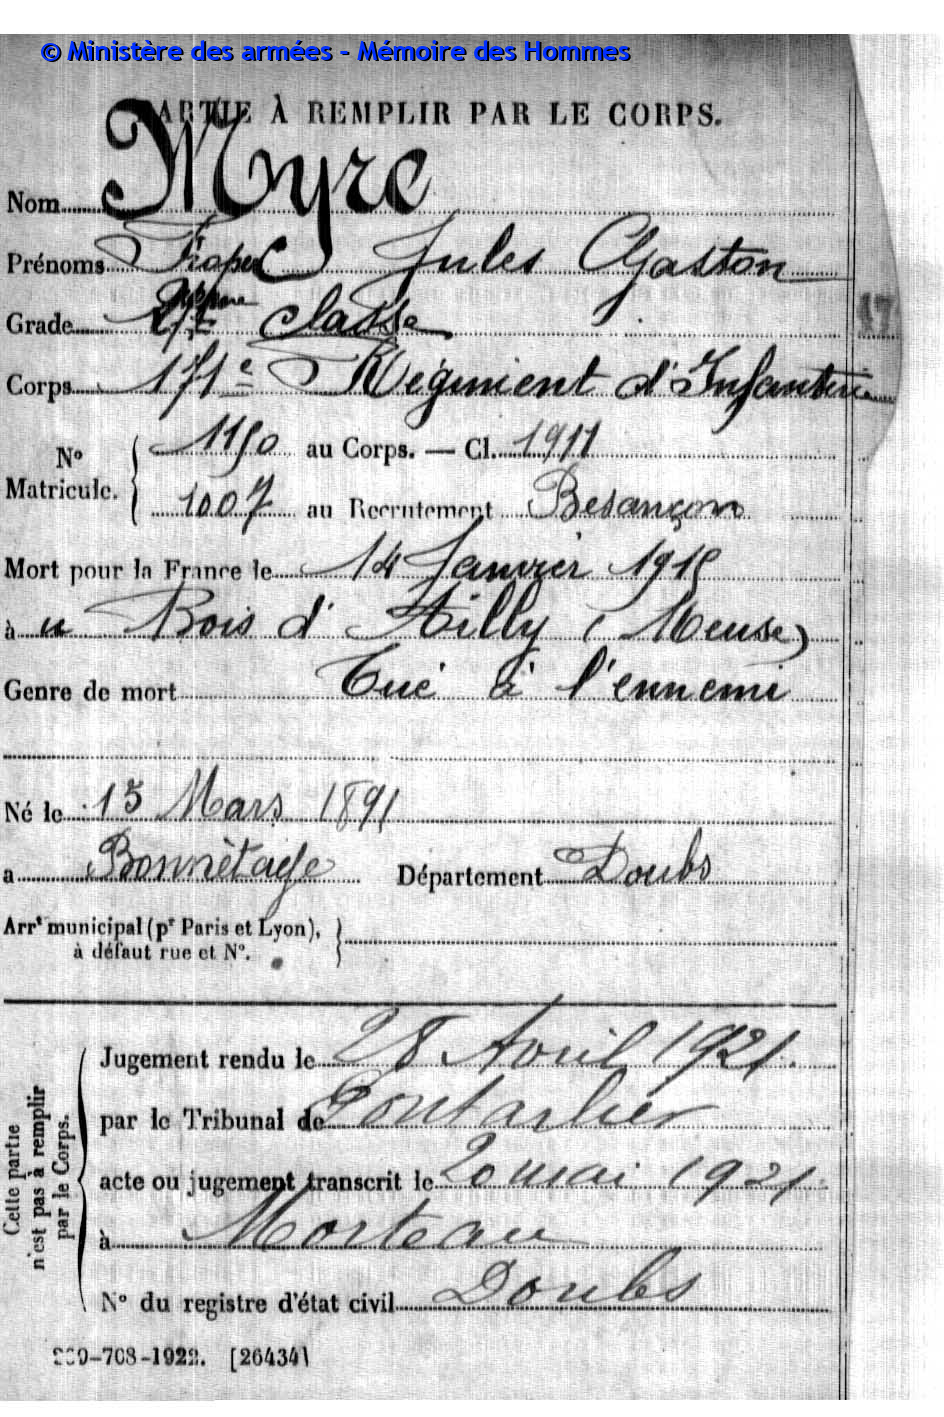 © Ministère des armées - Mémoire des Hommes
PARTIE À REMPLIR PAR LE CORPS.
Nom Myre
Prénoms Jules Gaston
Grade 2ème classe
Corps 171e Régiment d'Infanterie
17
N° Matricule. 1150 au Corps. — Cl. 1911
1007 au Recrutement Besançon
Mort pour la France le 14 Janvier 1915
à u Bois d'Ailly (Meuse)
Genre de mort Tué à l'ennemi
Né le 15 Mars 1891
à Bonnètage Département Doubs
Arrt municipal (pr Paris et Lyon),
à défaut rue et N°.
Cette partie
n'est pas à remplir
par le Corps.
Jugement rendu le 28 Avril 1921.
par le Tribunal de Pontarlier
acte ou jugement transcrit le 20 mai 1921.
à Morteau
N° du registre d'état civil Doubs
-708-1922. [26434]